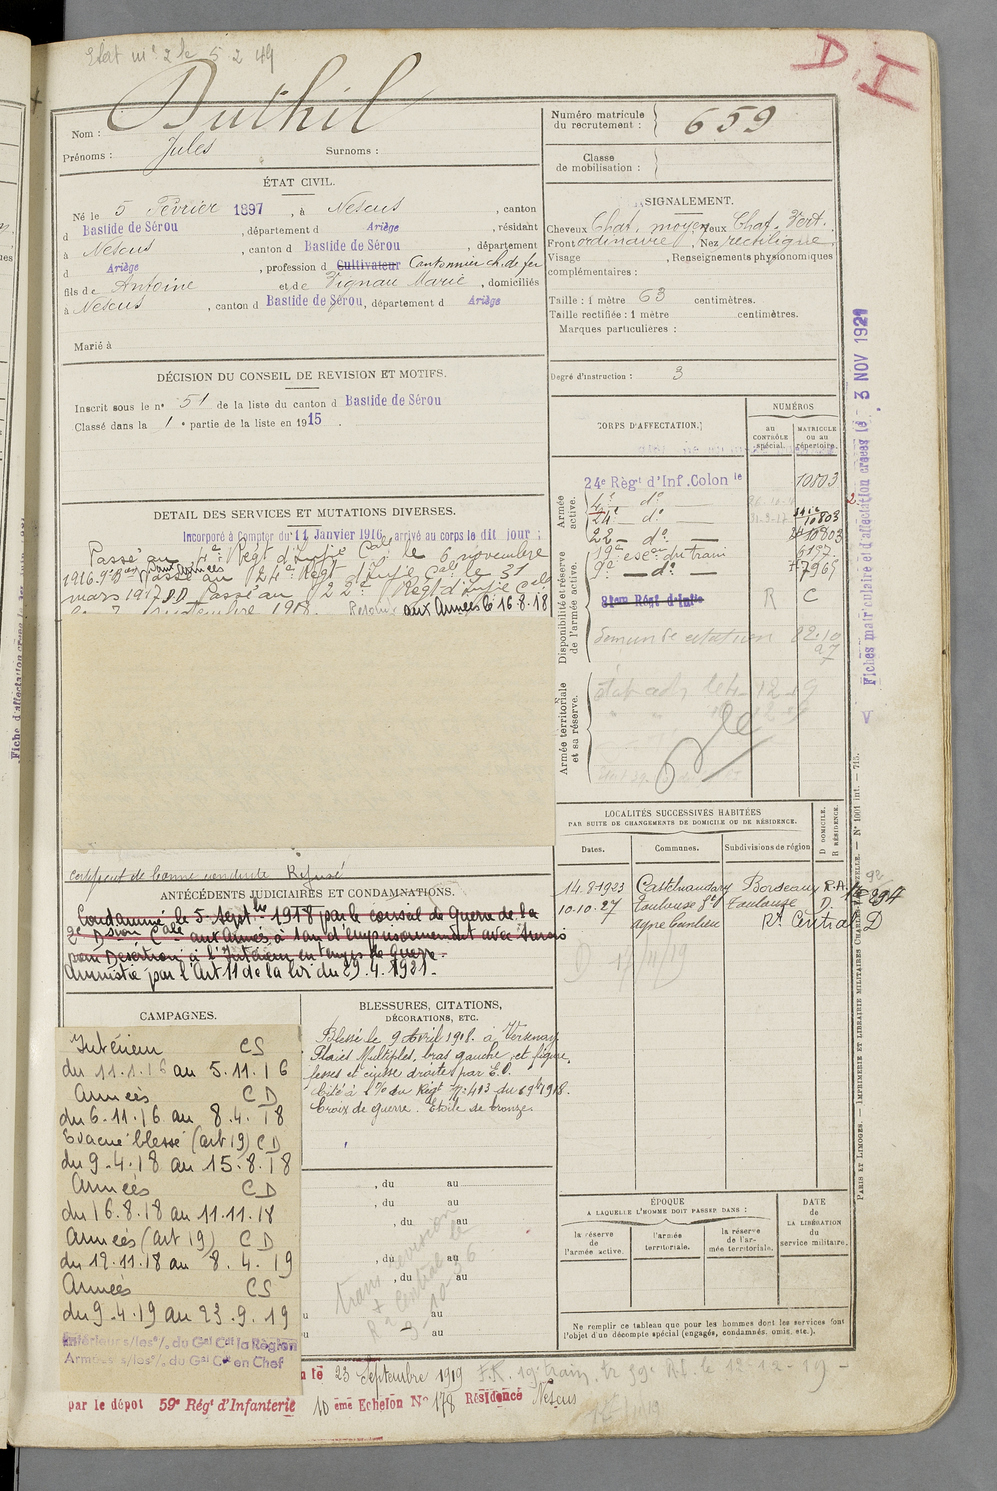 Etat mre 2 le 5 2 49
D.I
Nom : Duthil
Prénoms : Jules Surnoms :
Numéro matricule du recrutement : 659
Classe de mobilisation :
ÉTAT CIVIL.
Né le 5 Février 1897, à Nescus, canton
d Bastide de Sérou, département d Ariège, résidant
à Nescus, canton d Bastide de Sérou, département
d Ariège, profession d Cultivateur Cantonnier ch. de fer
fils de Antoine et de Vignau Marie, domiciliés
à Nescus, canton d Bastide de Sérou, département d Ariège
Marié à
SIGNALEMENT.
Cheveux Chat. moyen yeux Chat. Vert.
Front ordinaire, Nez rectiligne
Visage , Renseignements physionomiques
complémentaires :
Taille : 1 mètre 63 centimètres.
Taille rectifiée : 1 mètre centimètres.
Marques particulières :
Degré d'instruction : 3
DÉCISION DU CONSEIL DE REVISION ET MOTIFS.
Inscrit sous le n° 51 de la liste du canton d Bastide de Sérou
Classé dans la 1e partie de la liste en 1915.
DETAIL DES SERVICES ET MUTATIONS DIVERSES.
Incorporé à Compter du 11 Janvier 1916, arrivé au corps le dit jour ;
Passé au 4e Régt d'Infie Cale le 6 novembre
1916. Passé au 24e Régt d'Infie Cale le 31
mars 1917 Passé au 22e Régt d'Infie Cale
Retour aux Armées le 16.8.18
certificat de bonne conduite Refusé
CORPS D'AFFECTATION.
NUMÉROS
au CONTRÔLE spécial.
MATRICULE ou au répertoire.
Armée active.
24e Régt d'Inf. Colon le 10803
4e do
24e do 10803
22 do 10803
Disponibilité et réserve de l'armée active.
19e escon du train 6197
9e do 7965
81eme Régt d'Infie R C
Armée territoriale et sa réserve.
LOCALITÉS SUCCESSIVES HABITÉES
PAR SUITE DE CHANGEMENTS DE DOMICILE OU DE RÉSIDENCE.
Dates. Communes. Subdivisions de région D DOMICILE. R RÉSIDENCE.
14.8.1923 Castelnaudary Bordeaux R.A.
10.10.27 Toulouse Toulouse D.
Rt Central D
ANTÉCÉDENTS JUDICIAIRES ET CONDAMNATIONS.
Condamné le 5 Septbre 1918 par le conseil de Guerre de la
2e Dsion Cale aux Armées à 1 an d'emprisonnement avec sursis
pour Désertion à l'Intérieur en temps de Guerre.
Amnistié par l'Art 11 de la loi du 29.4.1921.
CAMPAGNES.
Intérieur CS
du 11.1.16 au 5.11.16
Armées CD
du 6-11.16 au 8.4.18
Evacué blessé (art 19) CD
du 9-4.18 au 15.8.18
Armées CD
du 16.8.18 au 11.11.18
Armées (art 19) CD
du 12.11.18 au 8.4.19
Armées CS
du 9.4.19 au 23.9.19
Intérieur s/les o/. du Gal Ct la Région
Armées s/les o/. du Gal Ct en Chef
BLESSURES, CITATIONS,
DÉCORATIONS, ETC.
Blessé le 9 Avril 1918. à Verzenay
Plaies Multiples, bras gauche et figure,
fesses et cuisse droites par E.O.
Cité à l'O/ du Régt No 413 du 1918.
Croix de guerre. Etoile de bronze.
, du au
, du au
, du au
, du au
, du au
au
au
trans revision
Rt Central le
9-10-36
ÉPOQUE
A LAQUELLE L'HOMME DOIT PASSER DANS :
la réserve de l'armée active.
l'armée territoriale.
la réserve de l'armée territoriale.
DATE de LA LIBÉRATION du service militaire.
Ne remplir ce tableau que pour les hommes dont les services font
l'objet d'un décompte spécial (engagés, condamnés, omis, etc.).
le 23 Septembre 1919
par le dépôt 59e Régt d'Infanterie 10eme Echelon No 178 Résidence Nescus
Fiches matriculaire et d'affectation créées le 3 NOV 1921
PARIS ET LIMOGES. — IMPRIMERIE ET LIBRAIRIE MILITAIRES CHARLES-LAVAUZELLE. — N° 1001 int. — 715.